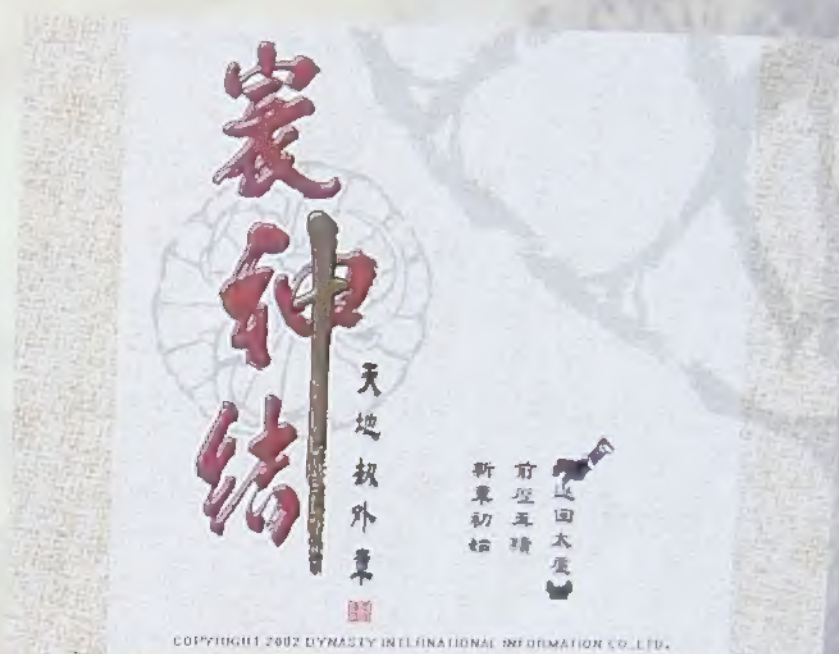 寰神結
天地劫外章
新章初始
前塵再續
返回太虛
COPYRIGHT 2002 DYNASTY INTERNATIONAL INFORMATION CO.,LTD.